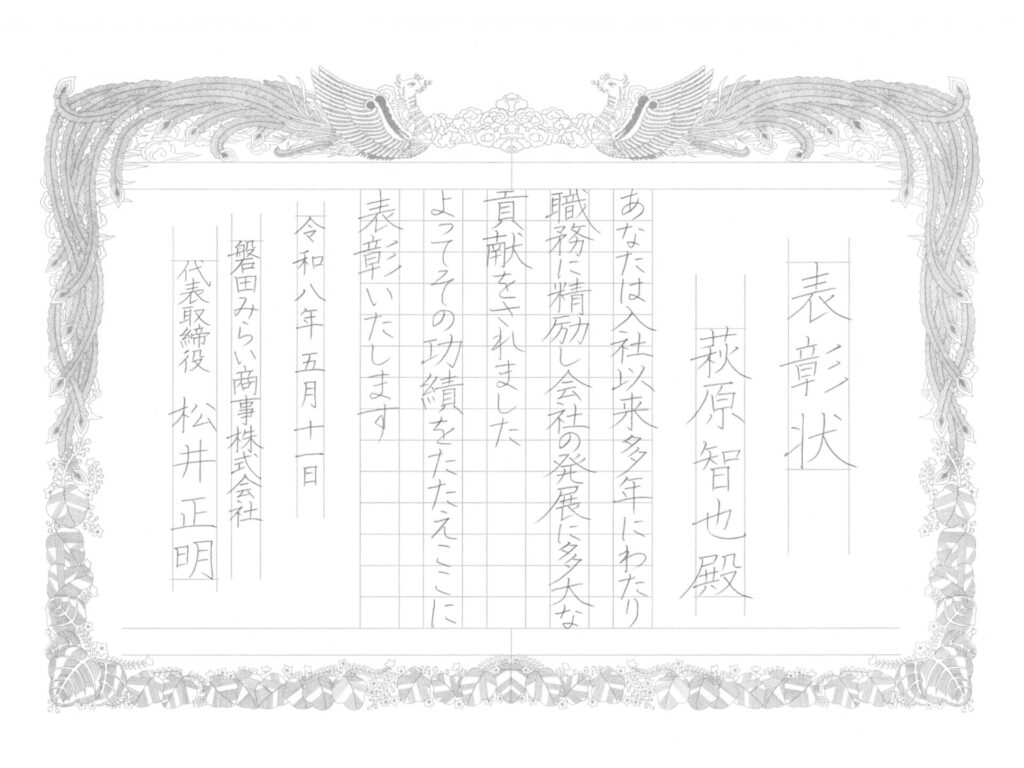 表彰状
萩原智也殿
あなたは入社以来多年にわたり
職務に精励し会社の発展に多大な
貢献をされました
よってその功績をたたえここに
表彰いたします
令和八年五月十一日
磐田みらい商事株式会社
代表取締役 松井正明